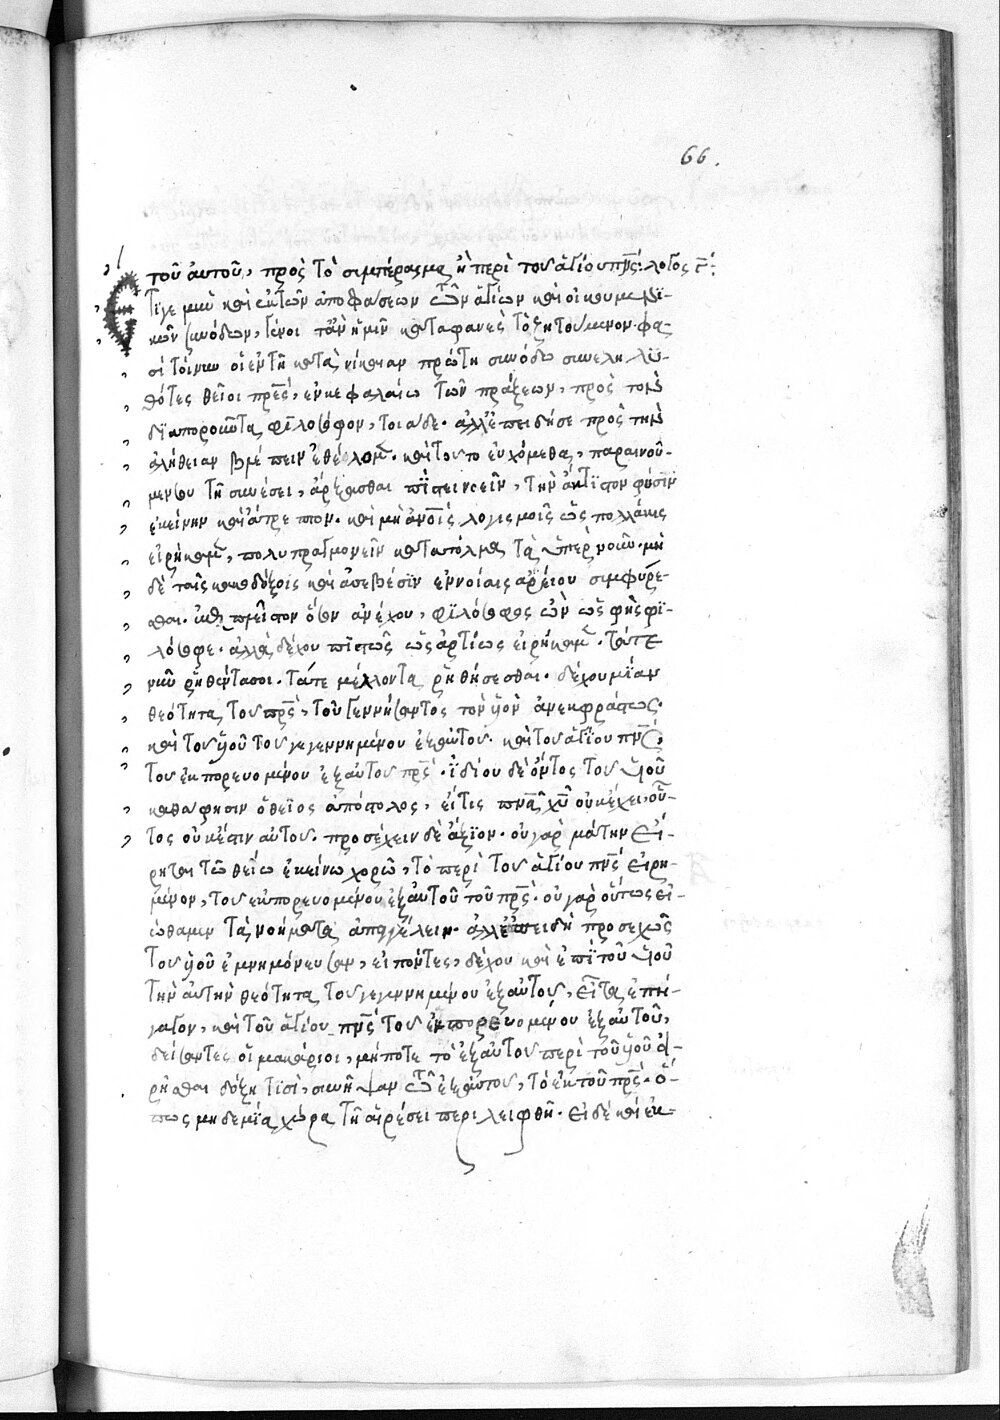 66.
τοῦ αὐτοῦ, πρὸς τὸ συμπέρασμα ἢ περὶ τοῦ ἁγίου πνς: λόγος ϛ:
Εἴγε μὴν καὶ ἐκ τῶν ἀποφάσεων τῶν ἁγίων καὶ οἰκουμενι-
κῶν συνόδων, γένοιτ' ἂν ἡμῖν καταφανὲς τὸ ζητούμενον. φα-
σὶ τοίνυν οἱ ἐν τῇ κατὰ νίκαιαν πρώτῃ συνόδω συνεληλυ-
θότες θεῖοι πρές, ἐν κεφαλαίω τῶν πράξεων, πρὸς τὸν
διαποροῦντα φιλόσοφον, τοιάδε. ἀλλ' ἐπειδήσε πρὸς τὴν
ἀλήθειαν βλέπειν ἐθέλομ. καὶ τοῦτο εὐχόμεθα, παραινοῦ-
μεν σου τῇ συνέσει, ἄρξασθαι πιστεύειν, τὴν ἄκτιστον φύσιν
ἐκείνην καὶ ἄτρεπτον. καὶ μὴ ἀνοσίοις λογισμοῖς ὡς πολλάκις
εἰρήκαμ, πολυπραγμονεῖν κατατόλμα τὰ ὑπὲρ νοῦν. μὴ
δὲ ταῖς κακοδόξοις καὶ ἀσεβέσιν ἐννοίαις ἀρείου συμφύρε-
σθαι. φιλόσοφος ὢν ὡς φῂς φι-
λόσοφε. ἀλλὰ δέχου πιστῶς ὡς ἀρτίως εἰρήκαμ. τάτε
νῦν ῥηθέντα σοι. τάτε μέλλοντα ῥηθήσεσθαι. δέχου μίαν
θεότητα τοῦ πρς, τοῦ γεννήσαντος τὸν υἱὸν ἀνεκφράστως.
καὶ τοῦ υἱοῦ τοῦ γεγεννημένου ἐξ αὐτοῦ. καὶ τοῦ ἁγίου πνς,
τοῦ ἐκπορευομένου ἐξ αὐτοῦ πρς. ἰδίου δὲ ὄντος τοῦ υἱοῦ
καθά φησιν ὁ θεῖος ἀπόστολος, εἴτις πνα χυ οὐκ ἔχει, οὗ-
τος οὐκ ἔστιν αὐτοῦ. προσέχειν δὲ ἄξιον. οὐ γὰρ μάτην εἴ-
ρηται τῶ θείω ἐκείνω χορῶ, τὸ περὶ τοῦ ἁγίου πνς εἰρη-
μένον, τοῦ ἐκπορευομένου ἐξ αὐτοῦ τοῦ πρς. οὐ γὰρ οὕτως εἰ-
ώθαμεν τὰ νοήματα ἀπαγγέλειν. ἀλλ' ἐπειδὴ προσεχῶς
τοῦ υἱοῦ ἐμνημόνευσαν, εἰπόντες, δέχου καὶ ἐπὶ τοῦ υἱοῦ
τὴν αὐτὴν θεότητα τοῦ γεγεννημένου ἐξ αὐτοῦ, εἶτα ἐπή-
γαγον, καὶ τοῦ ἁγίου πνς τοῦ ἐκπορευομένου ἐξ αὐτοῦ,
δείσαντες οἱ μακάριοι, μήποτε τὸ ἐξ αὐτοῦ περὶ τοῦ υἱοῦ εἰ-
ρῆσθαι δόξῃ τισὶ, συνῆψαν τῶ ἐξ αὐτοῦ, τὸ ἐκ τοῦ πρς. ὅ-
πως μηδεμία χώρα τῇ αἱρέσει περιλειφθῇ. εἰ δὲ καὶ ἐκ